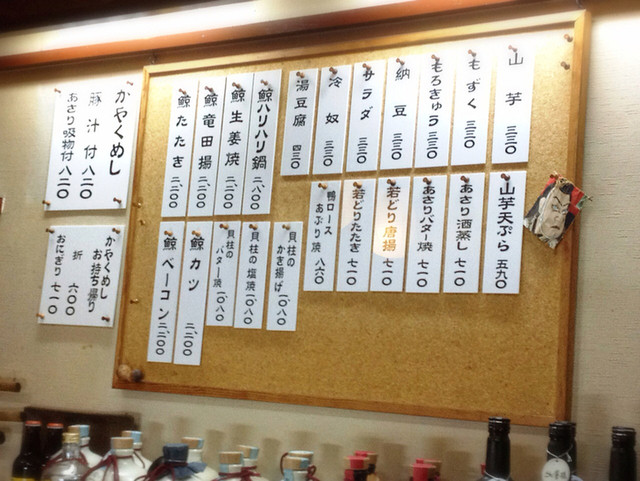 山芋 三三〇
もずく 三三〇
もろきゅう 三三〇
納豆 三三〇
サラダ 三三〇
冷奴 三三〇
湯豆腐 四三〇
鯨ハリハリ鍋 二、八〇〇
鯨生姜焼 二、二〇〇
鯨竜田揚 二、二〇〇
鯨たたき 二、二〇〇
山芋天ぷら 五九〇
あさり酒蒸し 七一〇
あさりバター焼 七一〇
若どり唐揚 七一〇
若どりたたき 七一〇
鴨ロース
あぶり焼 八六〇
貝柱の
かき揚げ 一、〇八〇
貝柱の塩焼 一、〇八〇
貝柱の
バター焼 一、〇八〇
鯨カツ 二、二〇〇
鯨ベーコン 二、二〇〇
かやくめし
豚汁付 八二〇
あさり吸物付 八二〇
かやくめし
お持ち帰り
折 六〇〇
おにぎり 七一〇